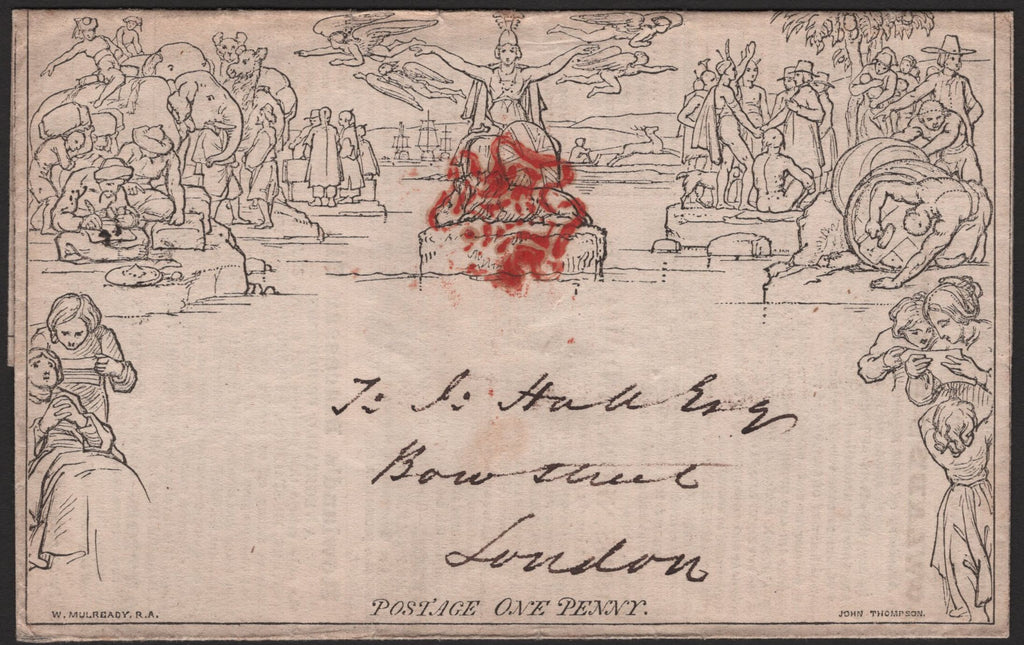 T: J: Hall Esq
Bow Street
London
POSTAGE ONE PENNY.
W. MULREADY, R.A.
JOHN THOMPSON.